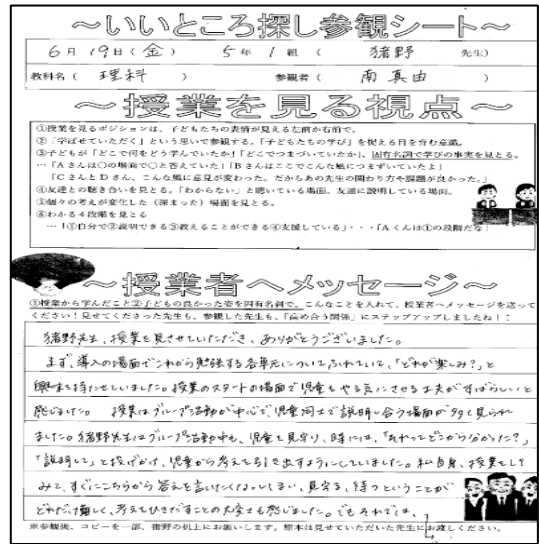 ～いいところ探し参観シート～
6月19日(金) 5年1組 (猪野 先生)
教科名(理科) 参観者(南真由)
～授業を見る視点～
①授業を見るポジションは、子どもたちの表情が見える左前か右前で。
②「学ばせていただく」という思いで参観する。「子どもたちの学び」を捉える目を育む意識。
③子どもが「どこで何をどう学んでいたか」「どこでつまづいていたか」、固有名詞で学びの事実を見とる。
…「Aさんは○の場面で○と答えていた」「Bさんはここでこんな風につまずいていたよ」
「CさんとDさん、こんな風に意見が変わった。だからあの先生の関わり方や課題が良かった。」
④友達との聴き合いを見とる。「わからない」と聴いている場面、友達に説明している場面。
⑤個々の考えが変化した(深まった)場面を見とる。
⑥わかる4段階を見とる
…「①自分で②説明できる③教えることができる④支援している」・・・「Aくんは①の段階だな」
～授業者へメッセージ～
①授業から学んだこと②子どもの良かった姿を固有名詞で。こんなことを入れて、授業者へメッセージを送って
ください！見せてくださった先生も、参観した先生も、「高め合う関係」にステップアップしましたね！！
猪野先生、授業を見させていただき、ありがとうございました。
まず、導入の場面でこれから勉強する各単元についてふれていて、「どれが楽しみ？」と
興味を持たせていました。授業のスタートの場面で児童をやる気にさせる工夫がすばらしいと
感じました。 授業はグループ活動が中心で、児童同士で説明し合う場面が多く見られ
ました。猪野先生はグループ活動中も、児童を見守り、時には、「それってどこから分かった？」
「説明して」と投げかけ、児童から考えを引き出すようにしていました。私自身、授業をして
みて、すぐにこちらから答えを言いたくなってしまい、見守る、待つということが
どれだけ難しく、考えをひきだすことの大変さも感じました。でもそれでは、
※参観後、コピーを一部、猪野の机上にお願いします。原本は見せていただいた先生にお渡しください。